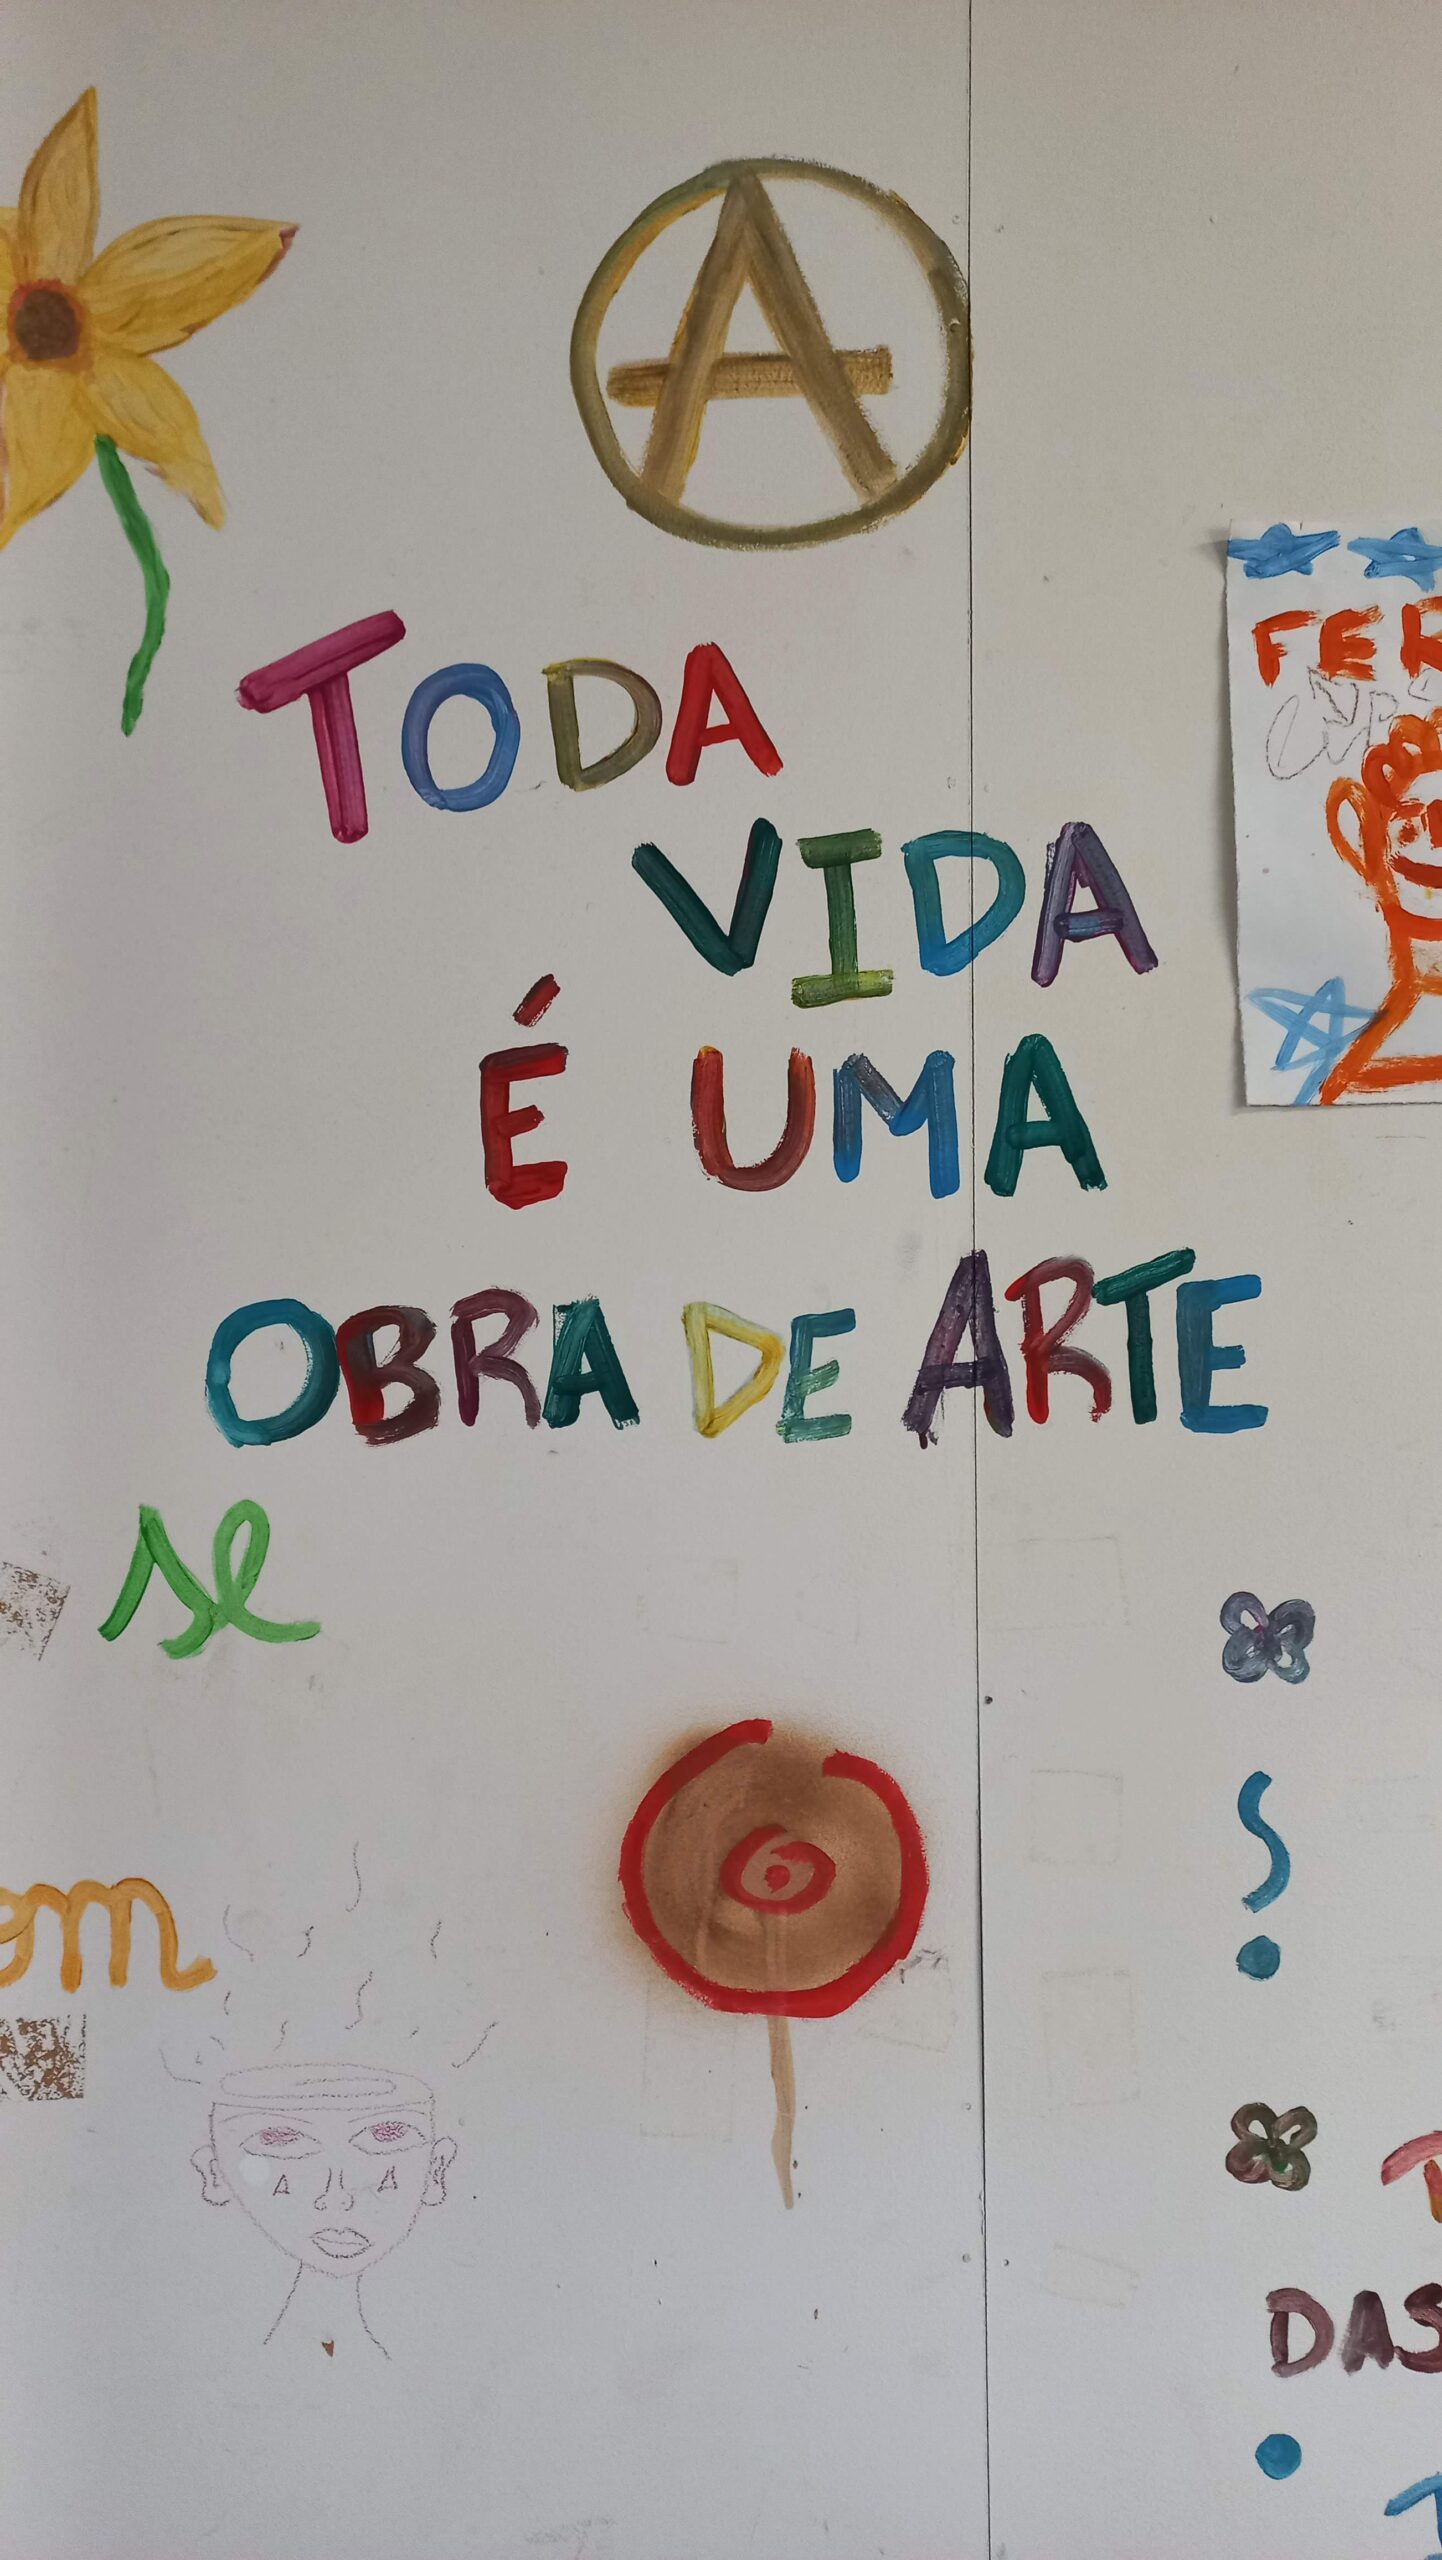 A
TODA
VIDA
É UMA
OBRA DE ARTE
FER
se
om
DAS